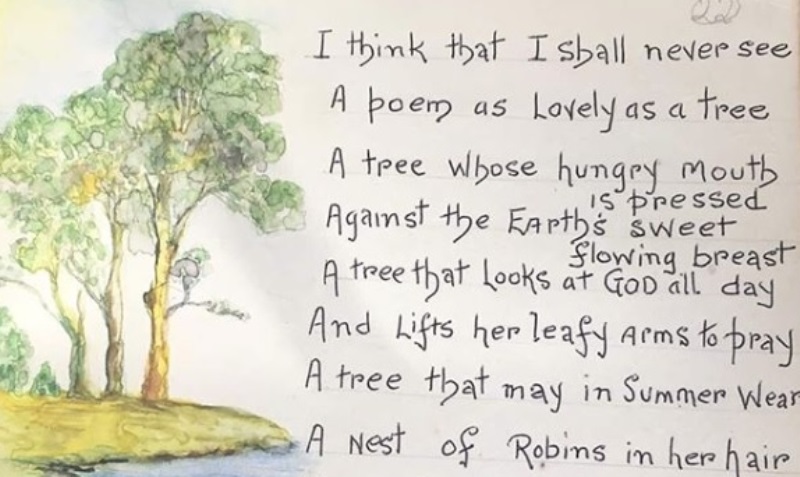 22
I think that I shall never see
A poem as Lovely as a tree
A tree whose hungry mouth
is pressed
Against the EARth's sweet
flowing breast
A tree that Looks at GOD all day
And Lifts her leafy Arms to pray
A tree that may in Summer Wear
A Nest of Robins in her hair